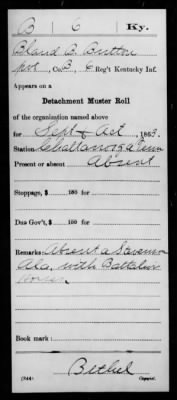 B 6 Ky.
Bland B. Button
pvt, Co. B, 6 Reg't Kentucky Inf.
Appears on a
Detachment Muster Roll
of the organization named above
for Sept & Oct, 1863.
Station Chattanooga Tenn
Present or absent Absent
Stoppage, $ 100 for
Due Gov't, $ 100 for
Remarks: Absent a Stevenson
Ala. with Battalion
Horses.
Book mark:
(344)
Bethel
Copyist.